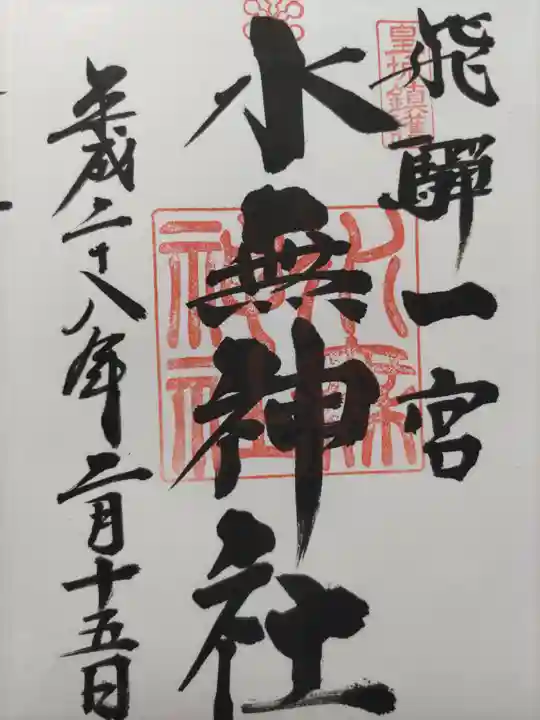 飛騨一宮
水無神社
平成二十八年二月十五日
水無神社